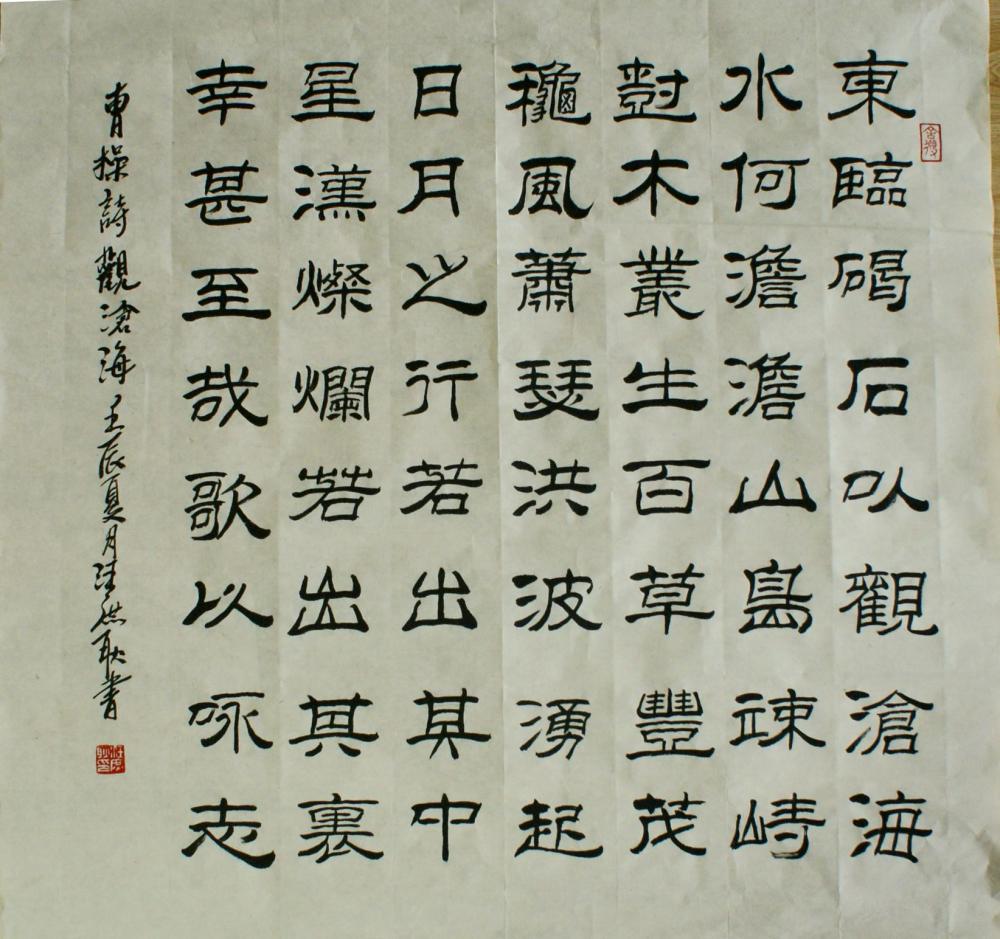 東臨碣石以觀滄海
水何澹澹山島竦峙
樹木叢生百草豐茂
龝風蕭瑟洪波湧起
日月之行若出其中
星漢燦爛若出其裏
幸甚至哉歌以詠志
曹操詩觀滄海壬辰夏月汪洪耿書